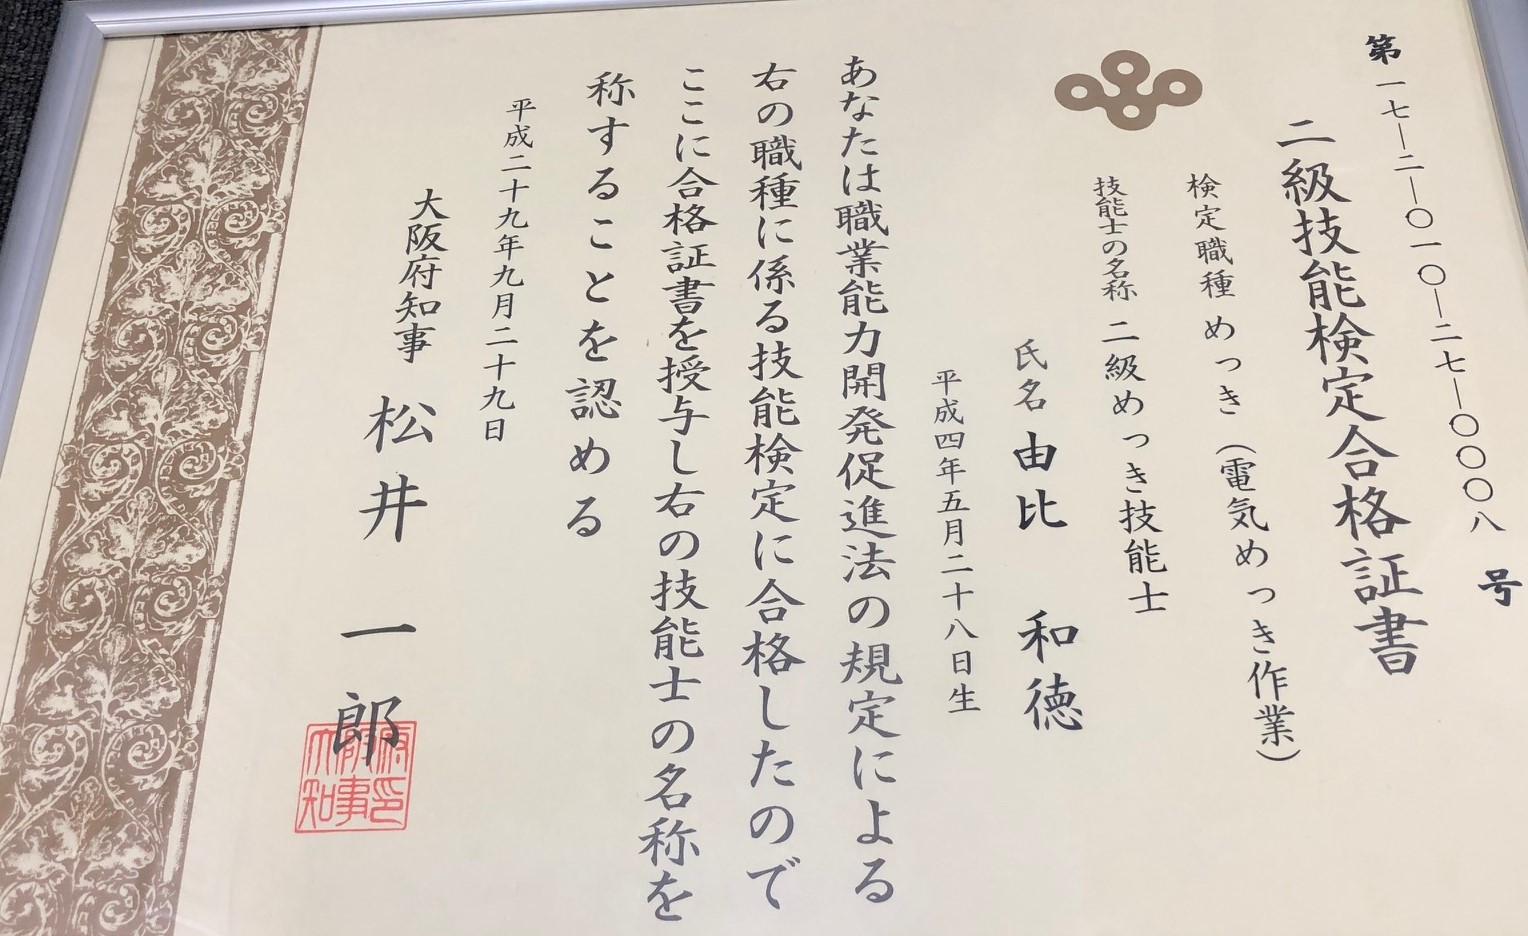 第一七―二―〇一〇―二七―〇〇〇八号
二級技能検定合格証書
検定職種 めっき（電気めっき作業）
技能士の名称 二級めっき技能士
氏名 由比 和徳
平成四年五月二十八日生
あなたは職業能力開発促進法の規定による
右の職種に係る技能検定に合格したので
ここに合格証書を授与し右の技能士の名称を
称することを認める
平成二十九年九月二十九日
大阪府知事 松井一郎
大阪府知事之印